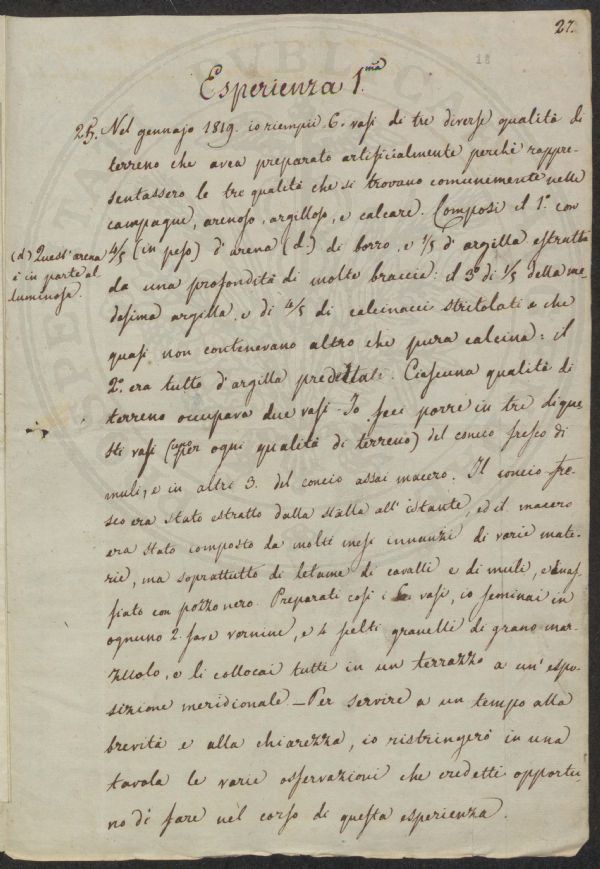 27.
18
Esperienza 1.ma
25. Nel gennajo 1819. io riempii 6. vasi di tre diverse qualità di
terreno che avea preparato artificialmente perchè rappre-
sentassero le tre qualità che si trovano comunemente nelle
campagne, arenoso, argilloso, e calcare. Composi il 1.o con
(d) Quest'arena
è in parte al
luminosa.
4/5 (in peso) d'arena (d.) di borro, e 1/5 d'argilla estratta
da una profondità di molte braccia: il 3.o di 1/5 della me-
desima argilla, e di 4/5 di calcinacci stritolati e che
quasi non contenevano altro che pura calcina: il
2.o era tutto d'argilla. Ciascuna qualità di
terreno occupava due vasi. Io feci porre in tre di que-
sti vasi (uno per ogni qualità di terreno) del concio fresco di
muli, e in altri 3. del concio assai macero. Il concio fre-
sco era stato estratto dalla stalla all'istante, ed il macero
era stato composto da molti mesi innanzi di varie mate-
rie, ma soprattutto di letame di cavalli e di muli, e annaf-
fiato con pozzo nero. Preparati così i 6. vasi, io seminai in
ognuno 2. fave vernine, e 4 scelti granelli di grano mar-
zuolo, e li collocai tutti in un terrazzo a un'espo-
sizione meridionale. — Per servire a un tempo alla
brevità e alla chiarezza, io ristringerò in una
tavola le varie osservazioni che credetti opportu-
no di fare nel corso di questa esperienza.